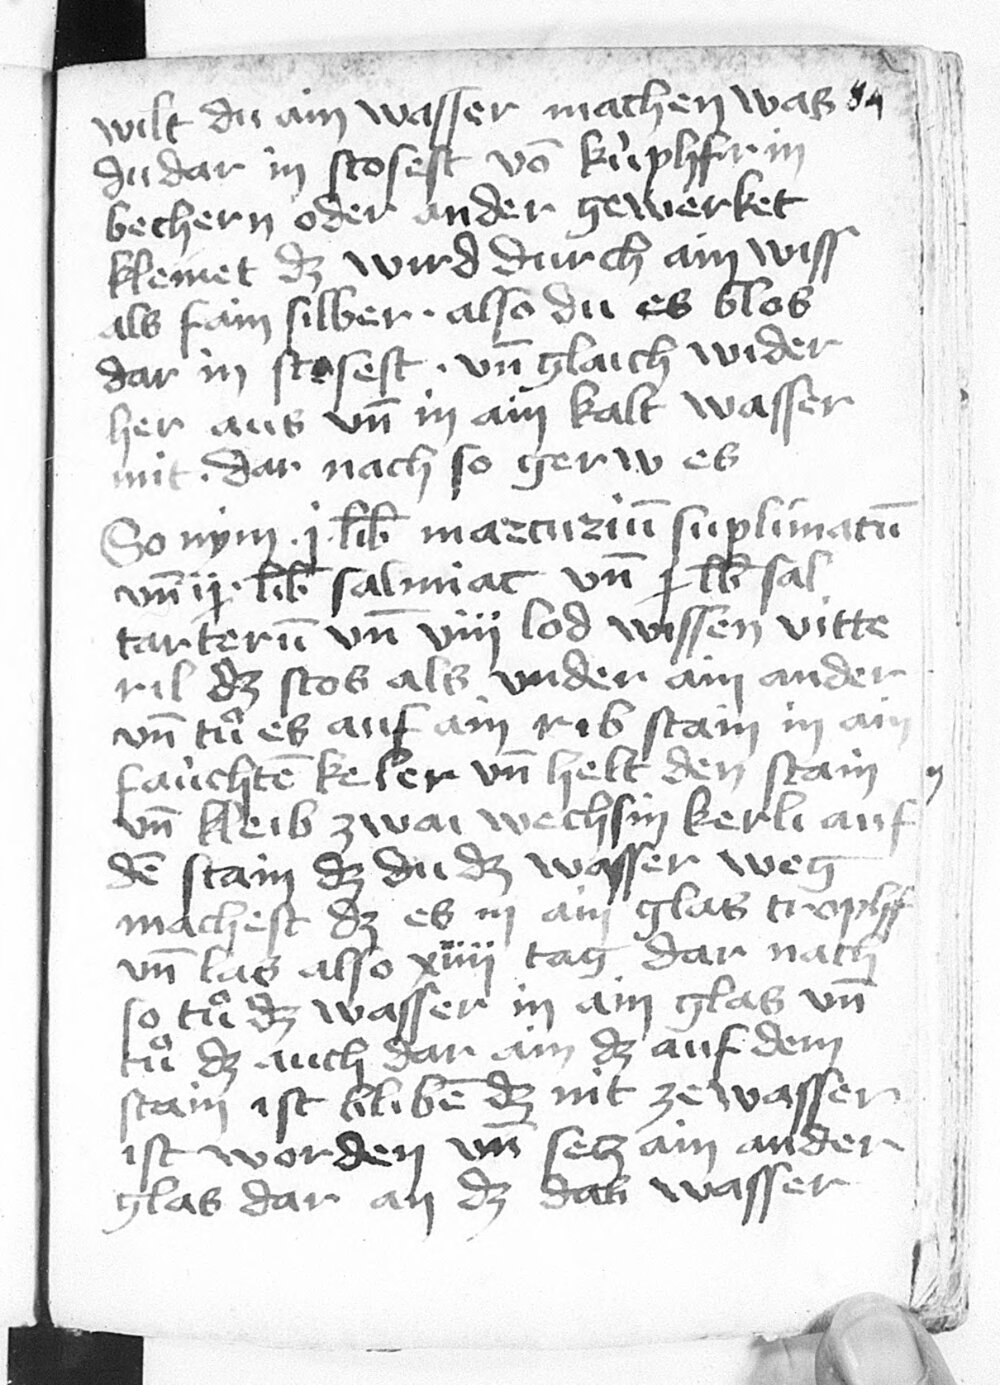 wilt du ain wasser machen was 84
du dar in stosest vō kúphfrin
bechern oder ander gewerket
kleinet dz wird durch ain wiss
als fain silber · also du es blos
dar in stosest · vn̄ glaich wider
her aus vn̄ in ain kalt wasser
mit · dar nach so gerw es
So nym · j · lib mercuriū suplimatū
vn̄ ij · lib salmiac vn̄ j lb sal
tarterū vn̄ viiij lod wissen vitte
ril dz stos als vnder ain ander
vn̄ tů es auf ain rib stain in ain
faúchtē keler vn̄ helt den stain
vn̄ kleib zwai wechsin kerli auf
dē stain dz du dz wasser weg
machest dz es in ain glas trophf
vn̄ las also xiiij tag dar nach
so tů dz wasser in ain glas vn̄
tů dz auch dar ain dz auf dem
stain ist blibē dz nit ze wasser
ist worden vn̄ setz ain ander
glas dar an dz das wasser